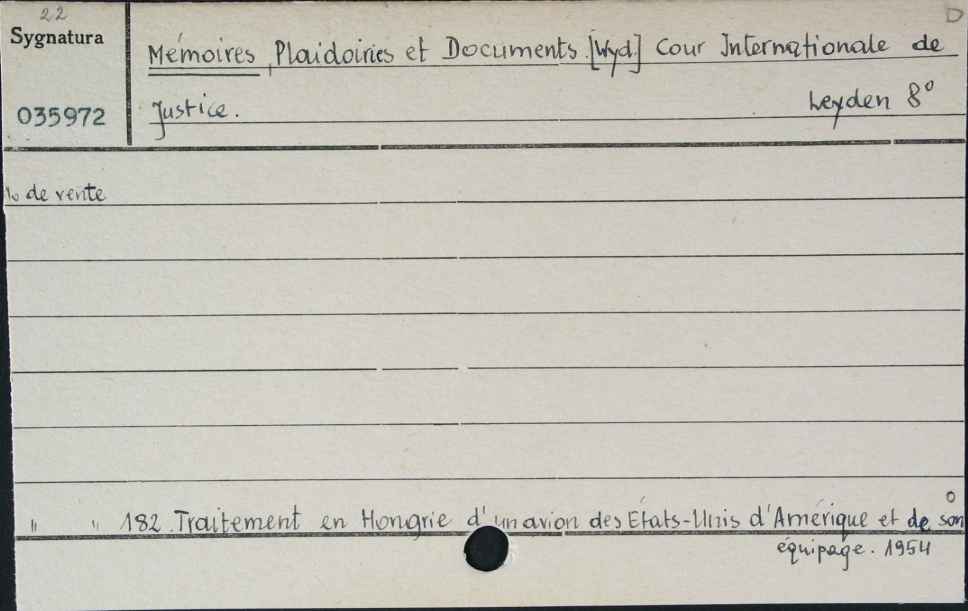 22
Sygnatura
035972
D
Mémoires, Plaidoiries et Documents. [Wyd.] Cour Internationale de
Justice. Leyden 8°
№ de vente
" " 182. Traitement en Hongrie d'un avion des États-Unis d'Amérique et de son
équipage. 1954